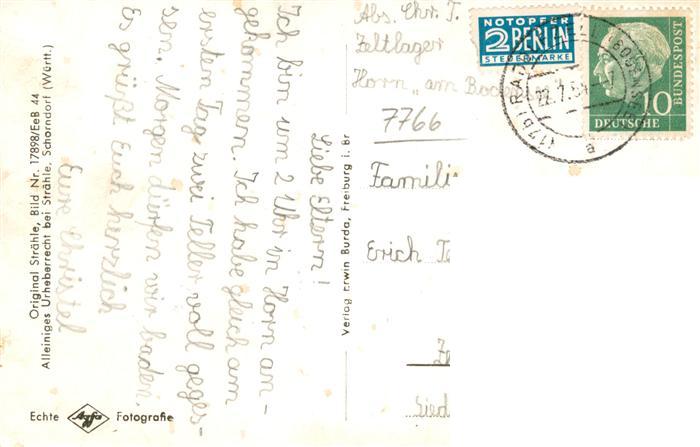 Liebe Eltern!
Ich bin um 2 Uhr in Horn an-
gekommen. Ich habe gleich am
ersten Tag zwei Teller voll geges-
sen. Morgen dürfen wir baden.
Es grüßt Euch herzlich
Eure Christel
Original Strähle, Bild Nr. 17898/EeB 44
Alleiniges Urheberrecht bei Strähle, Schorndorf (Württ.)
Echte Agfa Fotografie
Verlag Erwin Burda, Freiburg i. Br
Abs. Chr. T.
Zeltlager
Horn "am Bode
7766
Famili
Erich
NOTOPFER
2 BERLIN
STEUERMARKE
22.7.5
10
DEUTSCHE BUNDESPOST